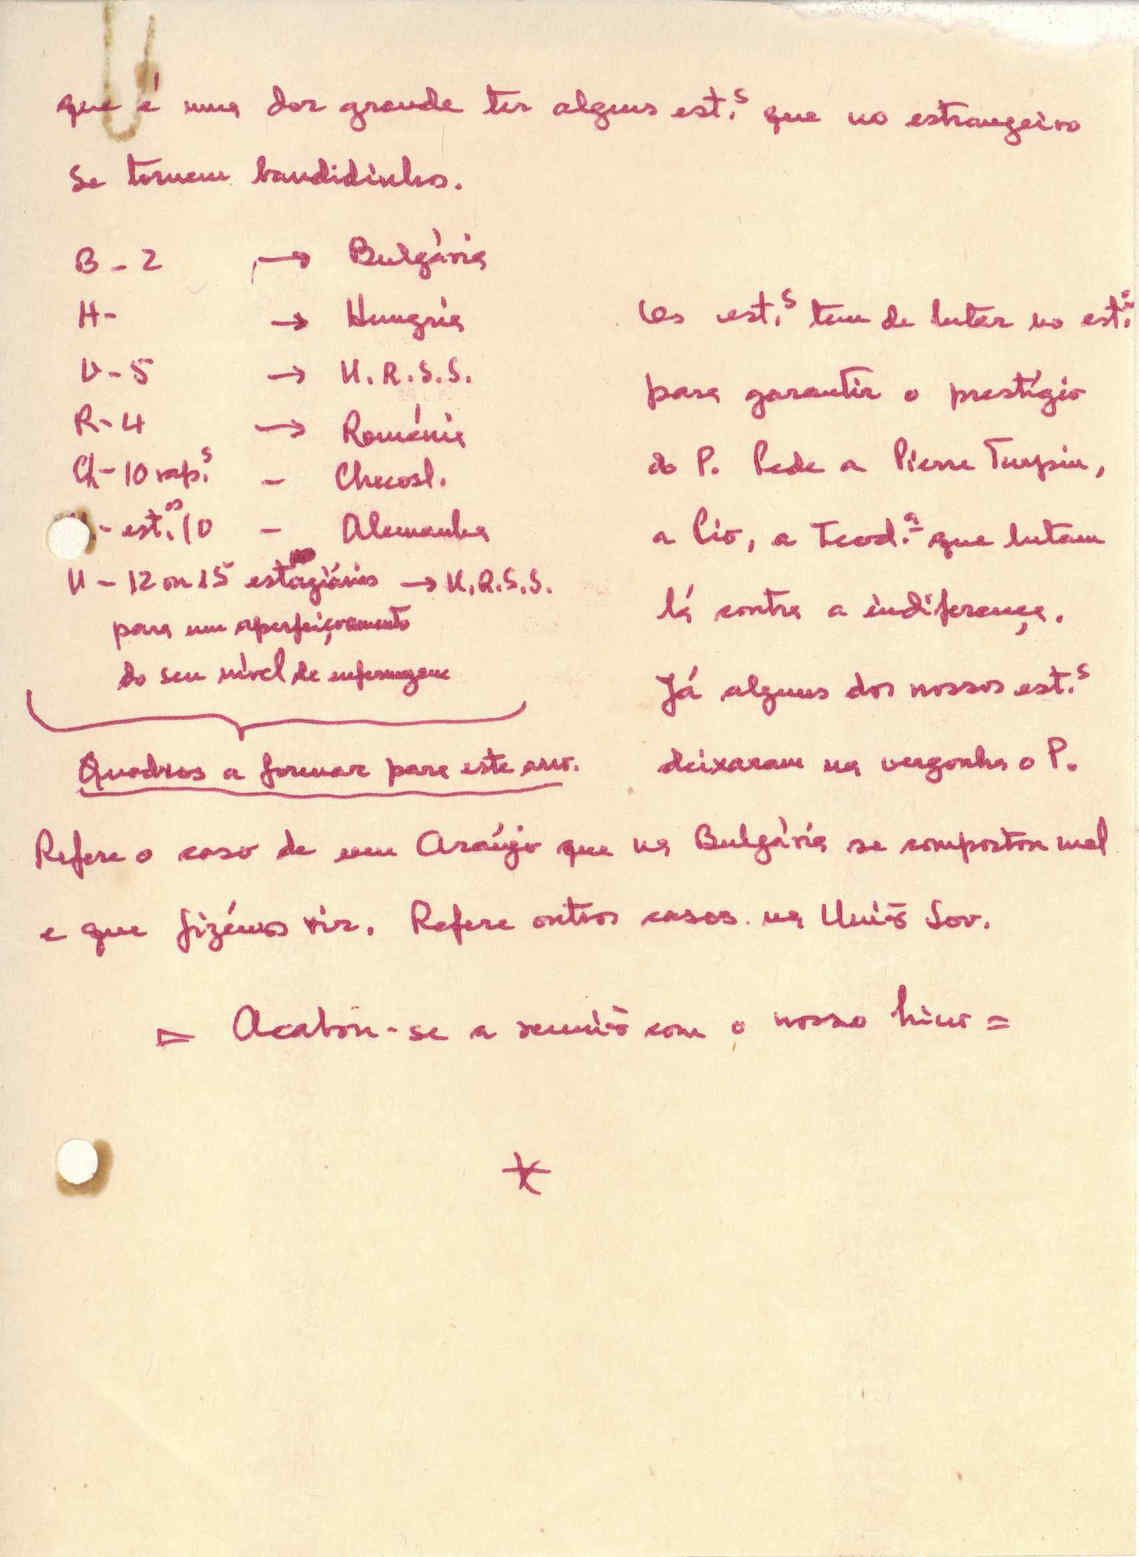 que é uma dor grande ter alguns est.s que no estrangeiro
se tornem bandidinhos.
B - 2 → Bulgária
H - → Hungria
U - 5 → U.R.S.S.
R - 4 → Roménia
Ch - 10 rap.s - Checosl.
- est.os 10 - Alemanha
U - 12 ou 15 estagiários → U.R.S.S.
para um aperfeiçoamento
do seu nível de enfermagem
Quadros a formar para este ano.
Os est.s tem de lutar no est.o
para garantir o prestígio
do P. Pede a Pierre Turpin,
a Cio, a Teod.a que lutam
lá contra a indiferença.
Já alguns dos nossos est.s
deixaram na vergonha o P.
Refere o caso de um Araújo que na Bulgária se comportou mal
e que fizémos vir. Refere outros casos na União Sov.
= Acabou-se a reunião com o nosso hino =